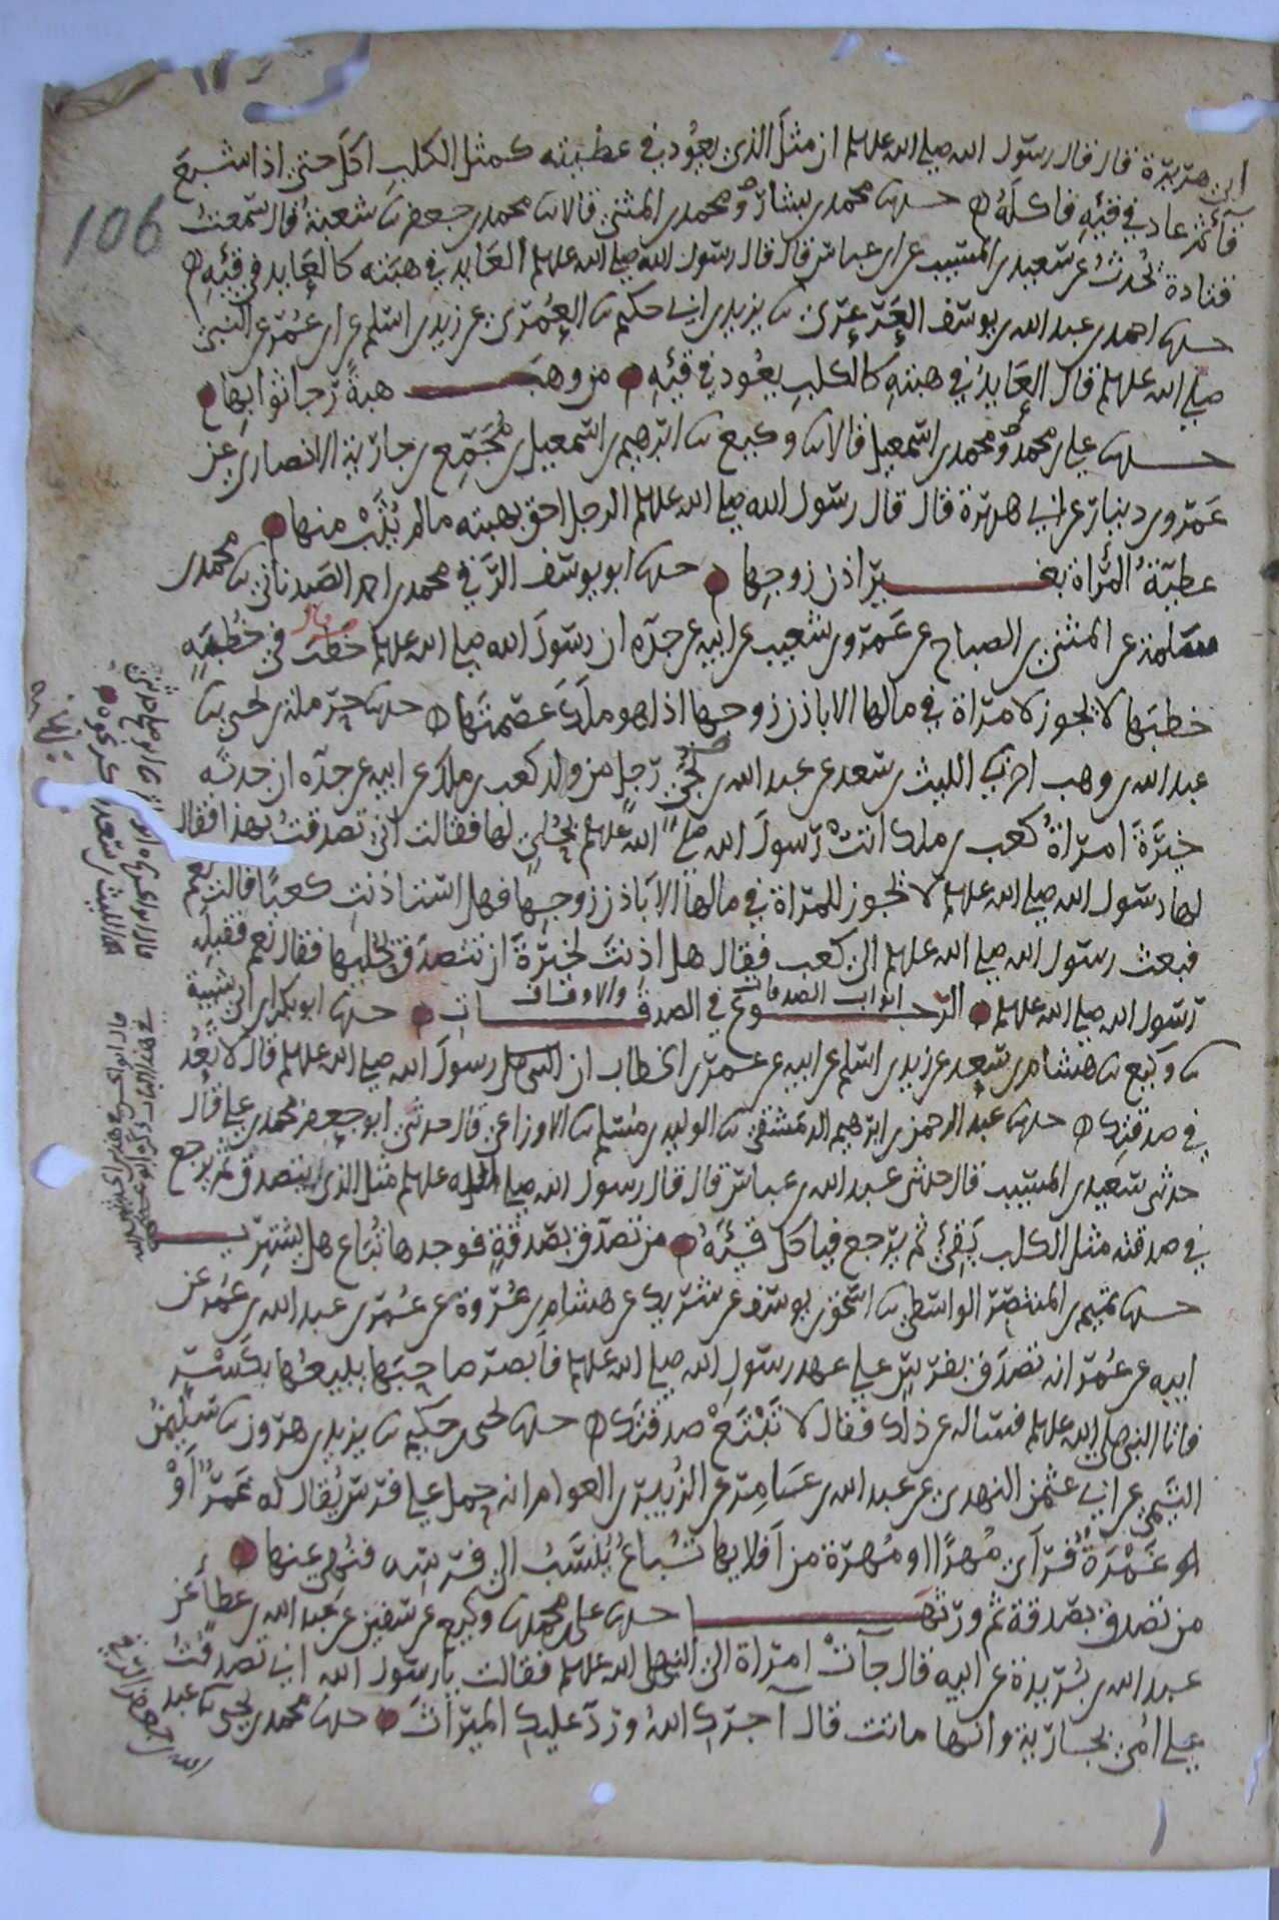 ابي هريرة قال قال رسول الله صلى الله عليه وسلم ان مثل الذي يعود في عطيته كمثل الكلب اكل حتى اذا شبع
قاء ثم عاد في قيئه فاكله حدثنا محمد بن بشار ومحمد بن المثنى قالا ثنا محمد بن جعفر ثنا شعبة قال سمعت
106
قتادة يحدث عن سعيد بن المسيب عن ابن عباس قال قال رسول الله صلى الله عليه وسلم العايد في هبته كالعايد في قيئه
حدثنا احمد بن عبد الله بن يوسف العرعري ثنا يزيد بن ابي حكيم ثنا العمري عن زيد بن اسلم عن ابن عمر عن النبي
صلى الله عليه وسلم قال العايد في هبته كالكلب يعود في قيئه من وهب هبة رجا ثوابها
حدثنا علي بن محمد ومحمد بن اسمعيل قالا ثنا وكيع ثنا ابرهيم بن اسمعيل بن مجمع بن جارية الانصاري عن
عمرو بن دينار عن ابي هريرة قال قال رسول الله صلى الله عليه وسلم الرجل احق بهبته ما لم يثب منها
عطية المرأة بغير اذن زوجها حدثنا ابو يوسف الرقي محمد بن احمد الصيدناني ثنا محمد بن
سلمة عن المثنى بن الصباح عن عمرو بن شعيب عن ابيه عن جده ان رسول الله صلى الله عليه وسلم قال في خطبة
خطبها لا يجوز لامرأة في مالها الا باذن زوجها اذا هو ملك عصمتها حدثنا حرملة بن يحيى ثنا
عبد الله بن وهب اخبرني الليث بن سعد عن عبد الله بن يحيى رجل من ولد كعب بن ملك عن ابيه عن جده ان جدته
خيرة امرأة كعب بن ملك اتت رسول الله صلى الله عليه وسلم بحلي لها فقالت اني تصدقت بهذا فقال
لها رسول الله صلى الله عليه وسلم لا يجوز للمرأة في مالها الا باذن زوجها فهل استاذنت كعبا قالت نعم
فبعث رسول الله صلى الله عليه وسلم الى كعب فقال هل اذنت لخيرة ان تتصدق بحليها فقال نعم فقبله
رسول الله صلى الله عليه وسلم ابواب الصدقات والاوقاف الرجوع في الصدقات حدثنا ابو بكر بن ابي شيبة
ثنا وكيع ثنا هشام بن سعد عن زيد بن اسلم عن ابيه عن عمر بن الخطاب ان رسول الله صلى الله عليه وسلم قال لا تعد
في صدقتك حدثنا عبد الرحمن بن ابرهيم الدمشقي ثنا الوليد بن مسلم ثنا الاوزاعي قال حدثني ابو جعفر محمد بن علي قال
حدثني سعيد بن المسيب قال حدثني عبد الله بن عباس قال قال رسول الله صلى الله عليه وسلم مثل الذي يتصدق ثم يرجع
في صدقته مثل الكلب يقيء ثم يرجع فياكل قيئه من تصدق بصدقة فوجدها تباع هل يشتريها
حدثنا تميم بن المنتصر الواسطي ثنا اسحق بن يوسف عن شريك عن هشام بن عروة عن عمر بن عبد الله بن عمر عن
ابيه عن عمر انه تصدق بفرس على عهد رسول الله صلى الله عليه وسلم فابصر صاحبها يبيعها بكسر
فاتا النبي صلى الله عليه وسلم فساله عن ذلك فقال لا تبتع صدقتك حدثنا يحيى بن حكيم ثنا يزيد بن هرون ثنا سليمن
التيمي عن ابي عثمن النهدي عن عبد الله بن عامر عن الزبير بن العوام انه حمل على فرس يقال له غمر او
غمرة فراى مهرا او مهرة من افلايها تباع ينسب الى فرسه فنهي عنها
من تصدق بصدقة ثم ورثها حدثنا علي بن محمد ثنا وكيع عن سفين عن عبد الله بن عطاء عن
عبد الله بن بريدة عن ابيه قال جآت امرأة الى النبي صلى الله عليه وسلم فقالت يا رسول الله اني تصدقت
على امي بجارية وانها ماتت قال آجرك الله ورد عليك الميراث حدثنا محمد بن يحيى ثنا عبد
الله بن جعفر الرقي